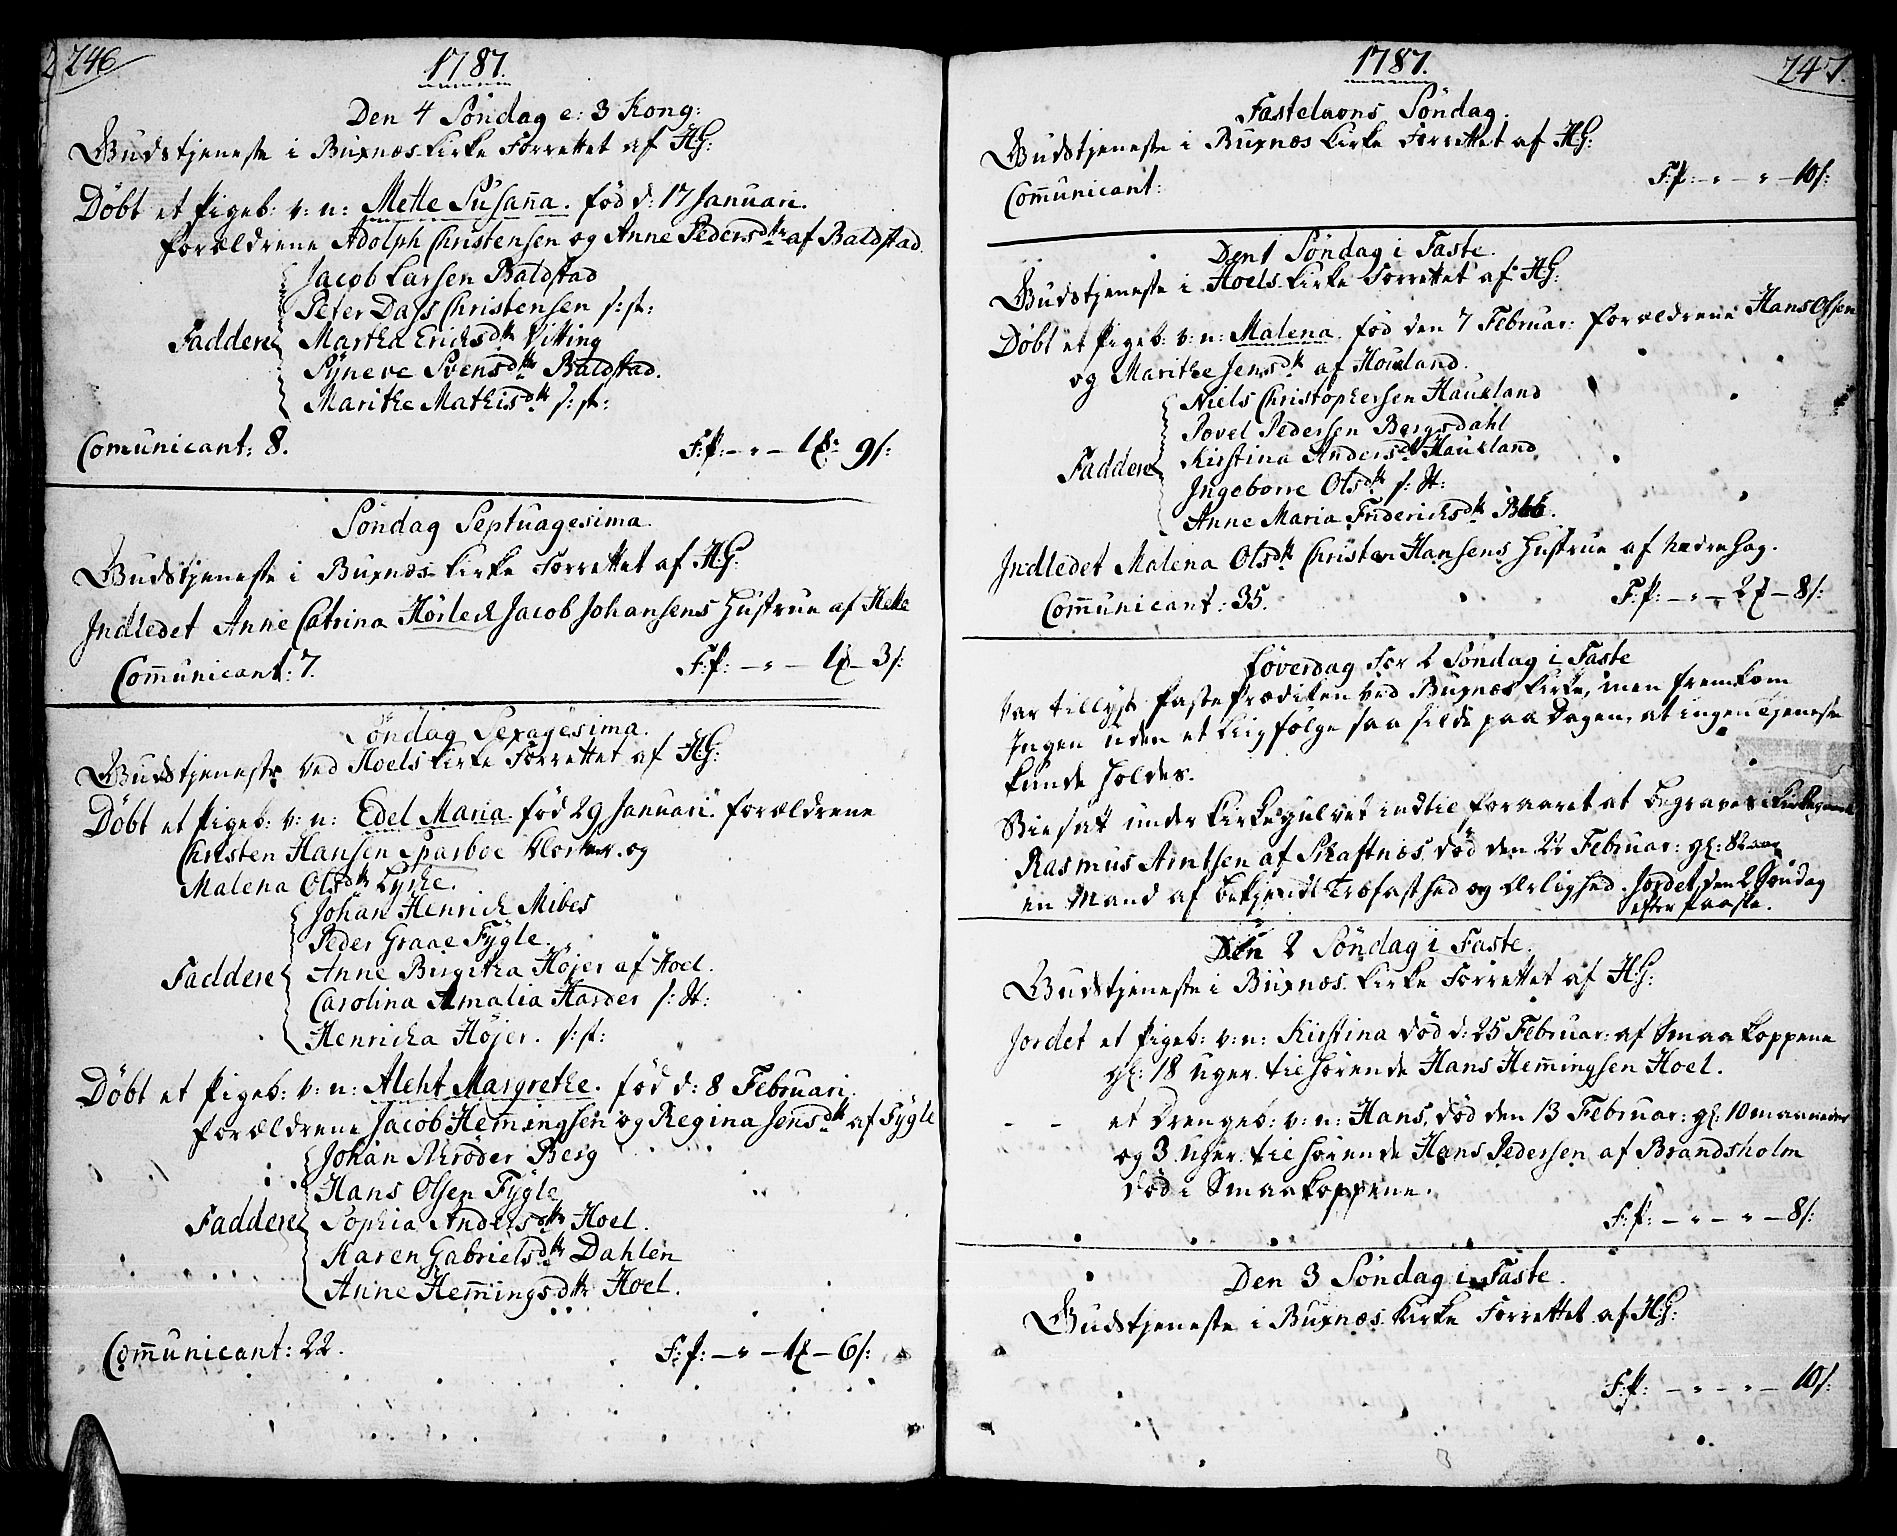 246
1787.
Den 4 Söndag e: 3 Kong:
Gudstjeneste i Buxnæs Kirke Forrettet af HG:
Döbt et Pigeb: v: n: Mette Susana. fód d: 17 Januari.
forældrene Adolph Christensen og Anne Pedersdtr af Baldstad
Jacob Larsen Baldstad
Peter Dass Christensen s: st:
Faddere Martha Ericksdtr Vitting
Syneve Svensdtr Baldstad.
Marithe Mathisdtr s: st:
Comunicant: 8. F: P: - " - 1 9 s:
Söndag Septuagesima.
Gudstjeneste i Buxnæs Kirke Forrettet af HG:
Indledet Anne Catrina Hörleck Jacob Johansens Hustrue af Helle
Comunicant: 7. F: P: - " - 1 - 3 s:
Söndag Sexagesima.
Gudstjeneste ved Hoels Kirke Forrettet af HG:
Döbt et Pigeb: v: n: Edel Maria fód 29 Januari. forældrene
Christen Hansen Sparboe Klocker og
Malena Olsdtr Lyche.
Johan Henrick Mibes
Peder Graae Fygle.
Faddere Anne Birgitha Höjer af Hoel.
Carolina Amalia Harder s: st:
Henricha Höjer. s: st:
Döbt et Pigeb: v: n: Aleht Margrethe. fód d: 8 Februari.
forældrene Jacob Hemingsen og Regina Jensdtr af Fygle
Johan Schröder Berg
Hans Olsen Fygle
Faddere Sophia Andersdtr Hoel.
Karen Gabrielsdtr Dahlen
Anne Hemingsdtr Hoel.
Comunicant: 22. F: P: - " - 1 - 6 s:
247.
1787.
Fastelavns Söndag.
Gudstjeneste i Buxnæs Kirke Forrettet af HG:
Comunicant: F: P: - " - " - 10 s:
Den 1 Söndag i Faste.
Gudstjeneste i Hoels Kirke Forrettet af HG:
Döbt et Pigeb: v: n: Malena fód den 7 Februar: forældrene Hans Olsen
og Marithe Jensdtr af Houkland.
Niels Christophersen Haukland
Povel Pedersen Bergsdahl
Faddere Kirstina Andersdtr Haukland
Ingeborre Olsdtr s: st:
Anne Maria Friderichsdtr
Indledet Malena Olsdtr Christen Hansens Hustrue af
Comunicant: 35. F: P: - " - 2 - 8 s:
Löverdag For 2 Söndag i Faste
var tillyst Faste Prædiken ved Buxnæs Kirke, men fremkom
Ingen uden et Liigfölge saa silde paa Dagen, at ingen Tjeneste
kunde holdes.
under Kirkegulvet indtil foraaret at begraves i Kirkegaard
Rasmus Arntsen af Skaftnæs död den 22 Februar: gl: 82 aar
en Mand af bekjendt Troefasthed og Ærlighed. Jordet den 2 Söndag
efter Paaske.
Den 2 Söndag i Faste.
Gudstjeneste i Buxnæs Kirke Forrettet af HG:
Jordet et Pigeb: v: n: Kirstina död d: 25 Februar: af Smaa Koppene
gl: 18 Uger tilhörende Hans Hemingsen Hoel.
- - et Drengeb: v: n: Hans, död den 13 Februar: gl: 10 maaneder
og 3 Uger tilhörende Hans Pedersen af Brandsholm
död i Smaakoppene.
F: P: - " - " - 8 s:
Den 3 Söndag i Faste.
Gudstjeneste i Buxnæs Kirke Forrettet af HG:
F: P: - " - " - 10 s: